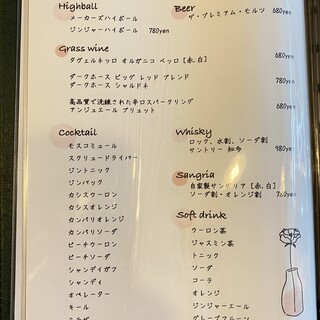 Highball
メーカーズハイボール
ジンジャーハイボール 780yen
Beer 680yen
ザ・プレミアム・モルツ
Grass wine
タヴェルネッロ オルガニコ ペッロ [赤, 白] 680yen
ダークホース ビッグ レッド ブレンド 780yen
ダークホース シャルドネ
高品質で洗練された辛口スパークリング 680yen
アンジュエール ブリュット
Cocktail
モスコミュール
スクリュードライバー
ジントニック
ジンバック
カシスウーロン
カシスオレンジ
カンパリオレンジ
カンパリソーダ
ピーチウーロン
ピーチソーダ
シャンディガフ
シャンディ
オペレーター
キール
Whisky
ロック、水割、ソーダ割
サントリー 知多 980yen
Sangria
自家製サングリア [赤, 白]
ソーダ割・オレンジ割 760yen
Soft drink
ウーロン茶
ジャスミン茶
トニック
ソーダ
コーラ
オレンジ
ジンジャーエール
グレープフルーツ